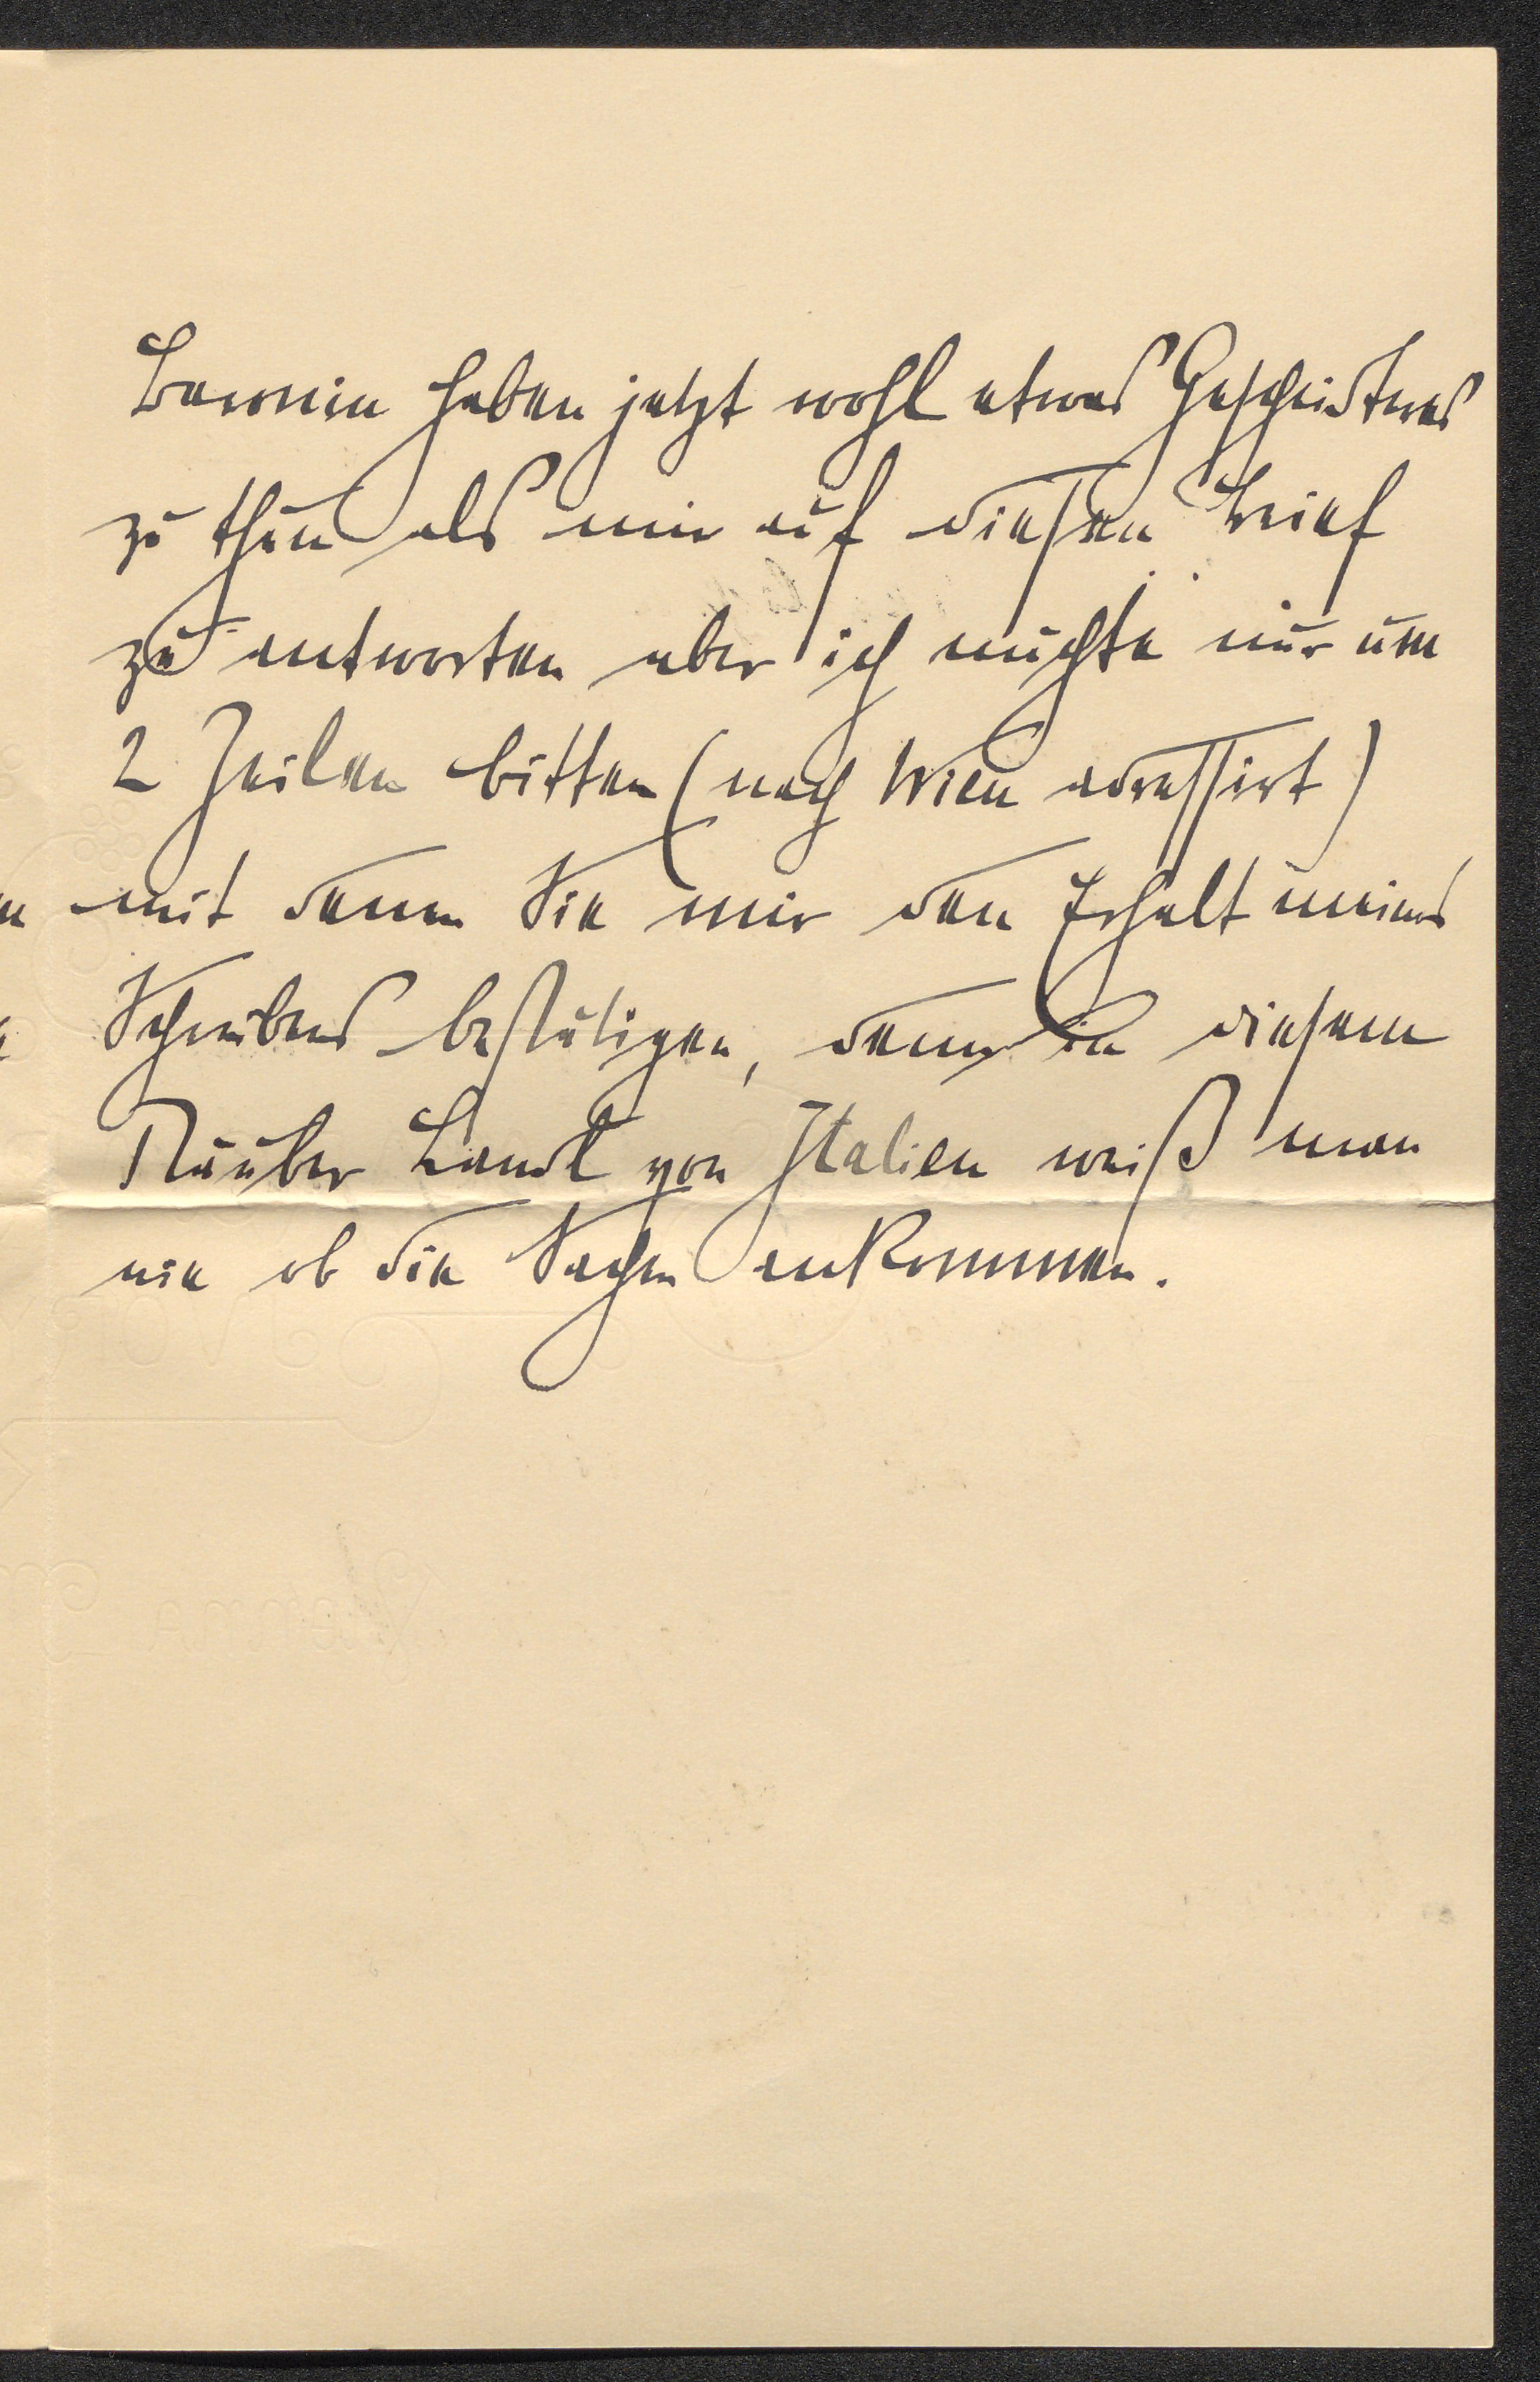 Baronin haben jetzt wohl etwas Gescheidteres
zu thun als mir auf diesen Brief
zu antworten aber ich möchte nur um
2 Zeilen bitten (nach Wien adressirt)
mit denen Sie mir den Erhalt meines
Schreibens bestätigen, denn in diesem
Räuber Land von Italien weiß man
nie ob die Sachen ankommen.